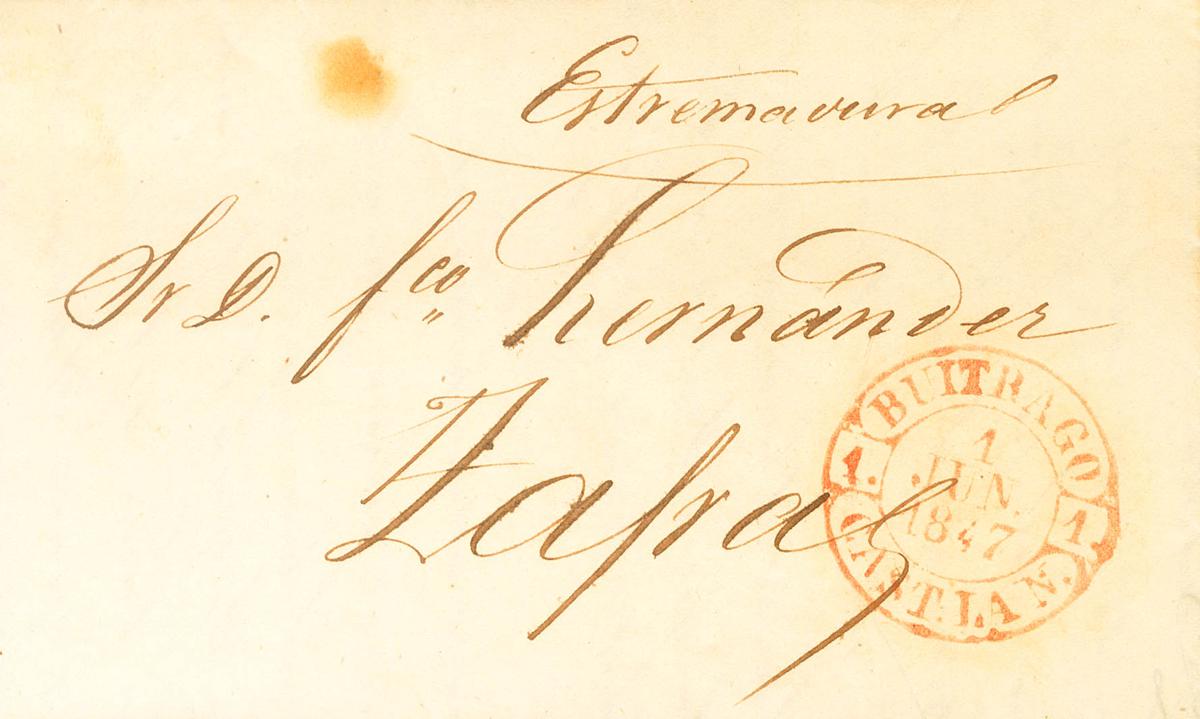 Estremadura
Sr D. Fco Hernández
Zafra
BUITRAGO
1
JUN.
1847
1.
1.
CAST. LA N.